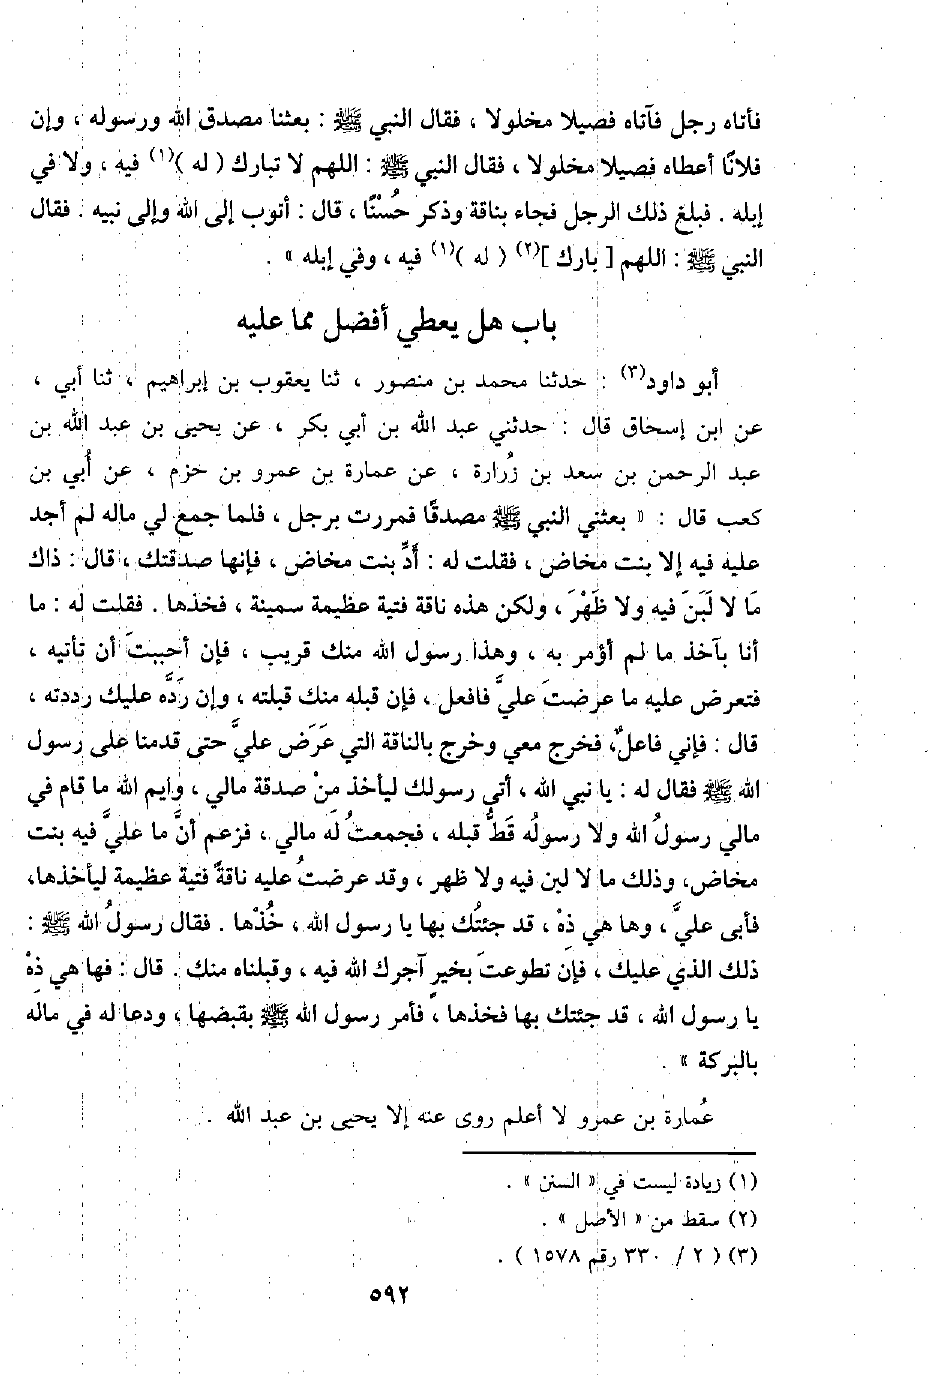 فأتاه رجل فآتاه فصيلا مخلولا ، فقال النبي ﷺ : بعثنا مصدق الله ورسوله ، وإن
فلانًا أعطاه فصيلا مخلولا ، فقال النبي ﷺ : اللهم لا تبارك ( له )(١) فيه ، ولا في
إبله . فبلغ ذلك الرجل فجاء بناقة وذكر حُسْنًا ، قال : أتوب إلى الله وإلى نبيه . فقال
النبي ﷺ : اللهم [ بارك ](٢) ( له )(١) فيه ، وفي إبله » .
باب هل يعطي أفضل مما عليه
أبو داود(٣) : حدثنا محمد بن منصور ، ثنا يعقوب بن إبراهيم ، ثنا أبي ،
عن ابن إسحاق قال : حدثني عبد الله بن أبي بكر ، عن يحيى بن عبد الله بن
عبد الرحمن بن سعد بن زُرارة ، عن عمارة بن عمرو بن حزم ، عن أُبي بن
كعب قال : « بعثني النبي ﷺ مصدقًا فمررت برجل ، فلما جمع لي ماله لم أجد
عليه فيه إلا بنت مخاض ، فقلت له : أَدِّ بنت مخاض ، فإنها صدقتك ، قال : ذاك
مَا لا لَبَنَ فيه ولا ظَهْرَ ، ولكن هذه ناقة فتية عظيمة سمينة ، فخذها . فقلت له : ما
أنا بآخذ ما لم أؤمر به ، وهذا رسول الله منك قريب ، فإن أحببتَ أن تأتيه ،
فتعرض عليه ما عرضتَ عليَّ فافعل ، فإن قبله منك قبلته ، وإن رَدَّه عليك رددته ،
قال : فإني فاعلٌ، فخرج معي وخرج بالناقة التي عَرَض عليَّ حتى قدمنا على رسول
الله ﷺ فقال له : يا نبي الله ، أتى رسولك ليأخذ مِنْ صدقة مالي ، وأيم الله ما قام في
مالي رسولُ الله ولا رسولُه قَطُّ قبله ، فجمعتُ له مالي ، فزعم أنَّ ما عليَّ فيه بنت
مخاض، وذلك ما لا لبن فيه ولا ظهر ، وقد عرضتُ عليه ناقةً فتية عظيمة ليأخذها،
فأبى عليَّ ، وها هي ذِهْ ، قد جئتُك بها يا رسول الله ، خُذْها . فقال رسولُ الله ﷺ :
ذلك الذي عليك ، فإن تطوعتَ بخيرٍ آجرك الله فيه ، وقبلناه منك . قال : فها هي ذِهْ
يا رسول الله ، قد جئتك بها فخذها ، فأمر رسول الله ﷺ بقبضها ، ودعا له في ماله
بالبركة » .
عُمارة بن عمرو لا أعلم روى عنه إلا يحيى بن عبد الله .
(١) زيادة ليست في « السنن » .
(٢) سقط من « الأصل » .
(٣) ( ٢ / ٣٣٠ رقم ١٥٧٨ ) .
٥٩٢